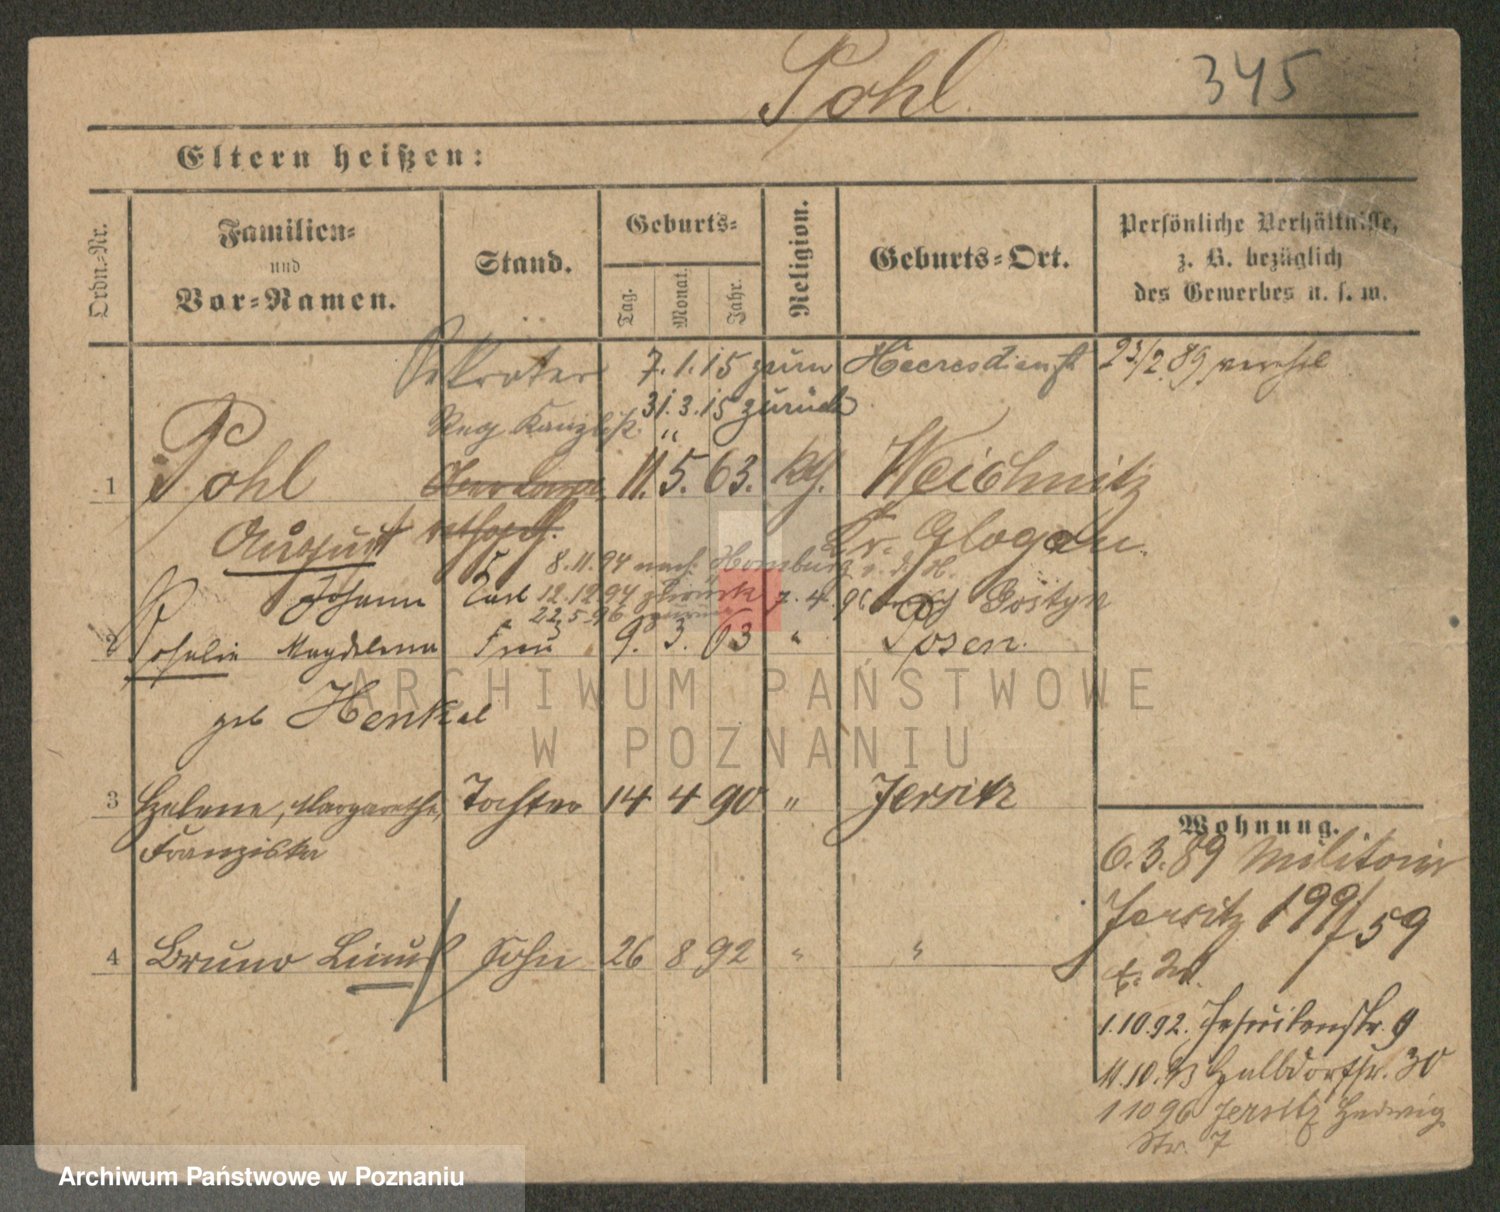 Pohl. 345
Eltern heißen:
Ordn.-Nr.
Familien-
und
Vor-Namen.
Stand.
Geburts-
Tag.
Monat.
Jahr.
Religion.
Geburts-Ort.
Persönliche Verhältnisse,
z. B. bezüglich
des Gewerbes u. s. w.
Sekretär 7.1.15 zum Heeresdienst 23/2 89
Reg Kanzlist 31.3.15 zurück
1 Pohl 11. 5. 63. kth. Weichnitz
August Kr. Glogau.
8.11.94 nach Homburg v. d. H.
Johann Carl 12.12.94 zurück 7.4.96 nach Gostyn
22.5.96 zurück
2 Rosalie Magdalena Frau 9. 3. 63 " Posen.
geb Henkel
3 Helene, Margarethe, Tochter 14 4 90 " Jersitz
Franziska
4 Bruno Linus Sohn 26 8 92 " "
Wohnung.
6.3.89 Militair
Jersitz 199/59
1.10.92. Jesuitenstr. 9
11.10.93 Halbdorfstr. 30
1 10 96 Jersitz Hedwig
Str. 7
ARCHIWUM PAŃSTWOWE
W POZNANIU
Archiwum Państwowe w Poznaniu